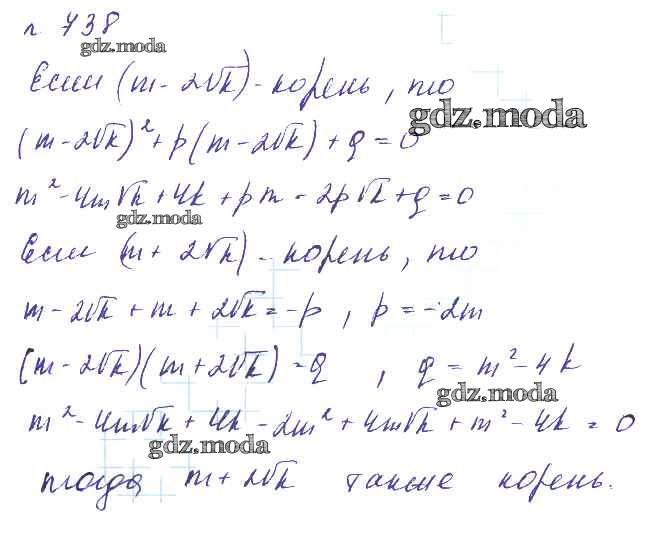 n 738
gdz.moda
Если (m - 2√k) - корень, то
gdz.moda
(m - 2√k)² + p(m - 2√k) + q = 0
m² - 4m√k + 4k + pm - 2p√k + q = 0
gdz.moda
Если (m + 2√k) - корень, то
m - 2√k + m + 2√k = -p, p = -2m
(m - 2√k)(m + 2√k) = q, q = m² - 4k
gdz.moda
m² - 4m√k + 4k - 2m² + 4m√k + m² - 4k = 0
gdz.moda
тогда m + 2√k также корень.